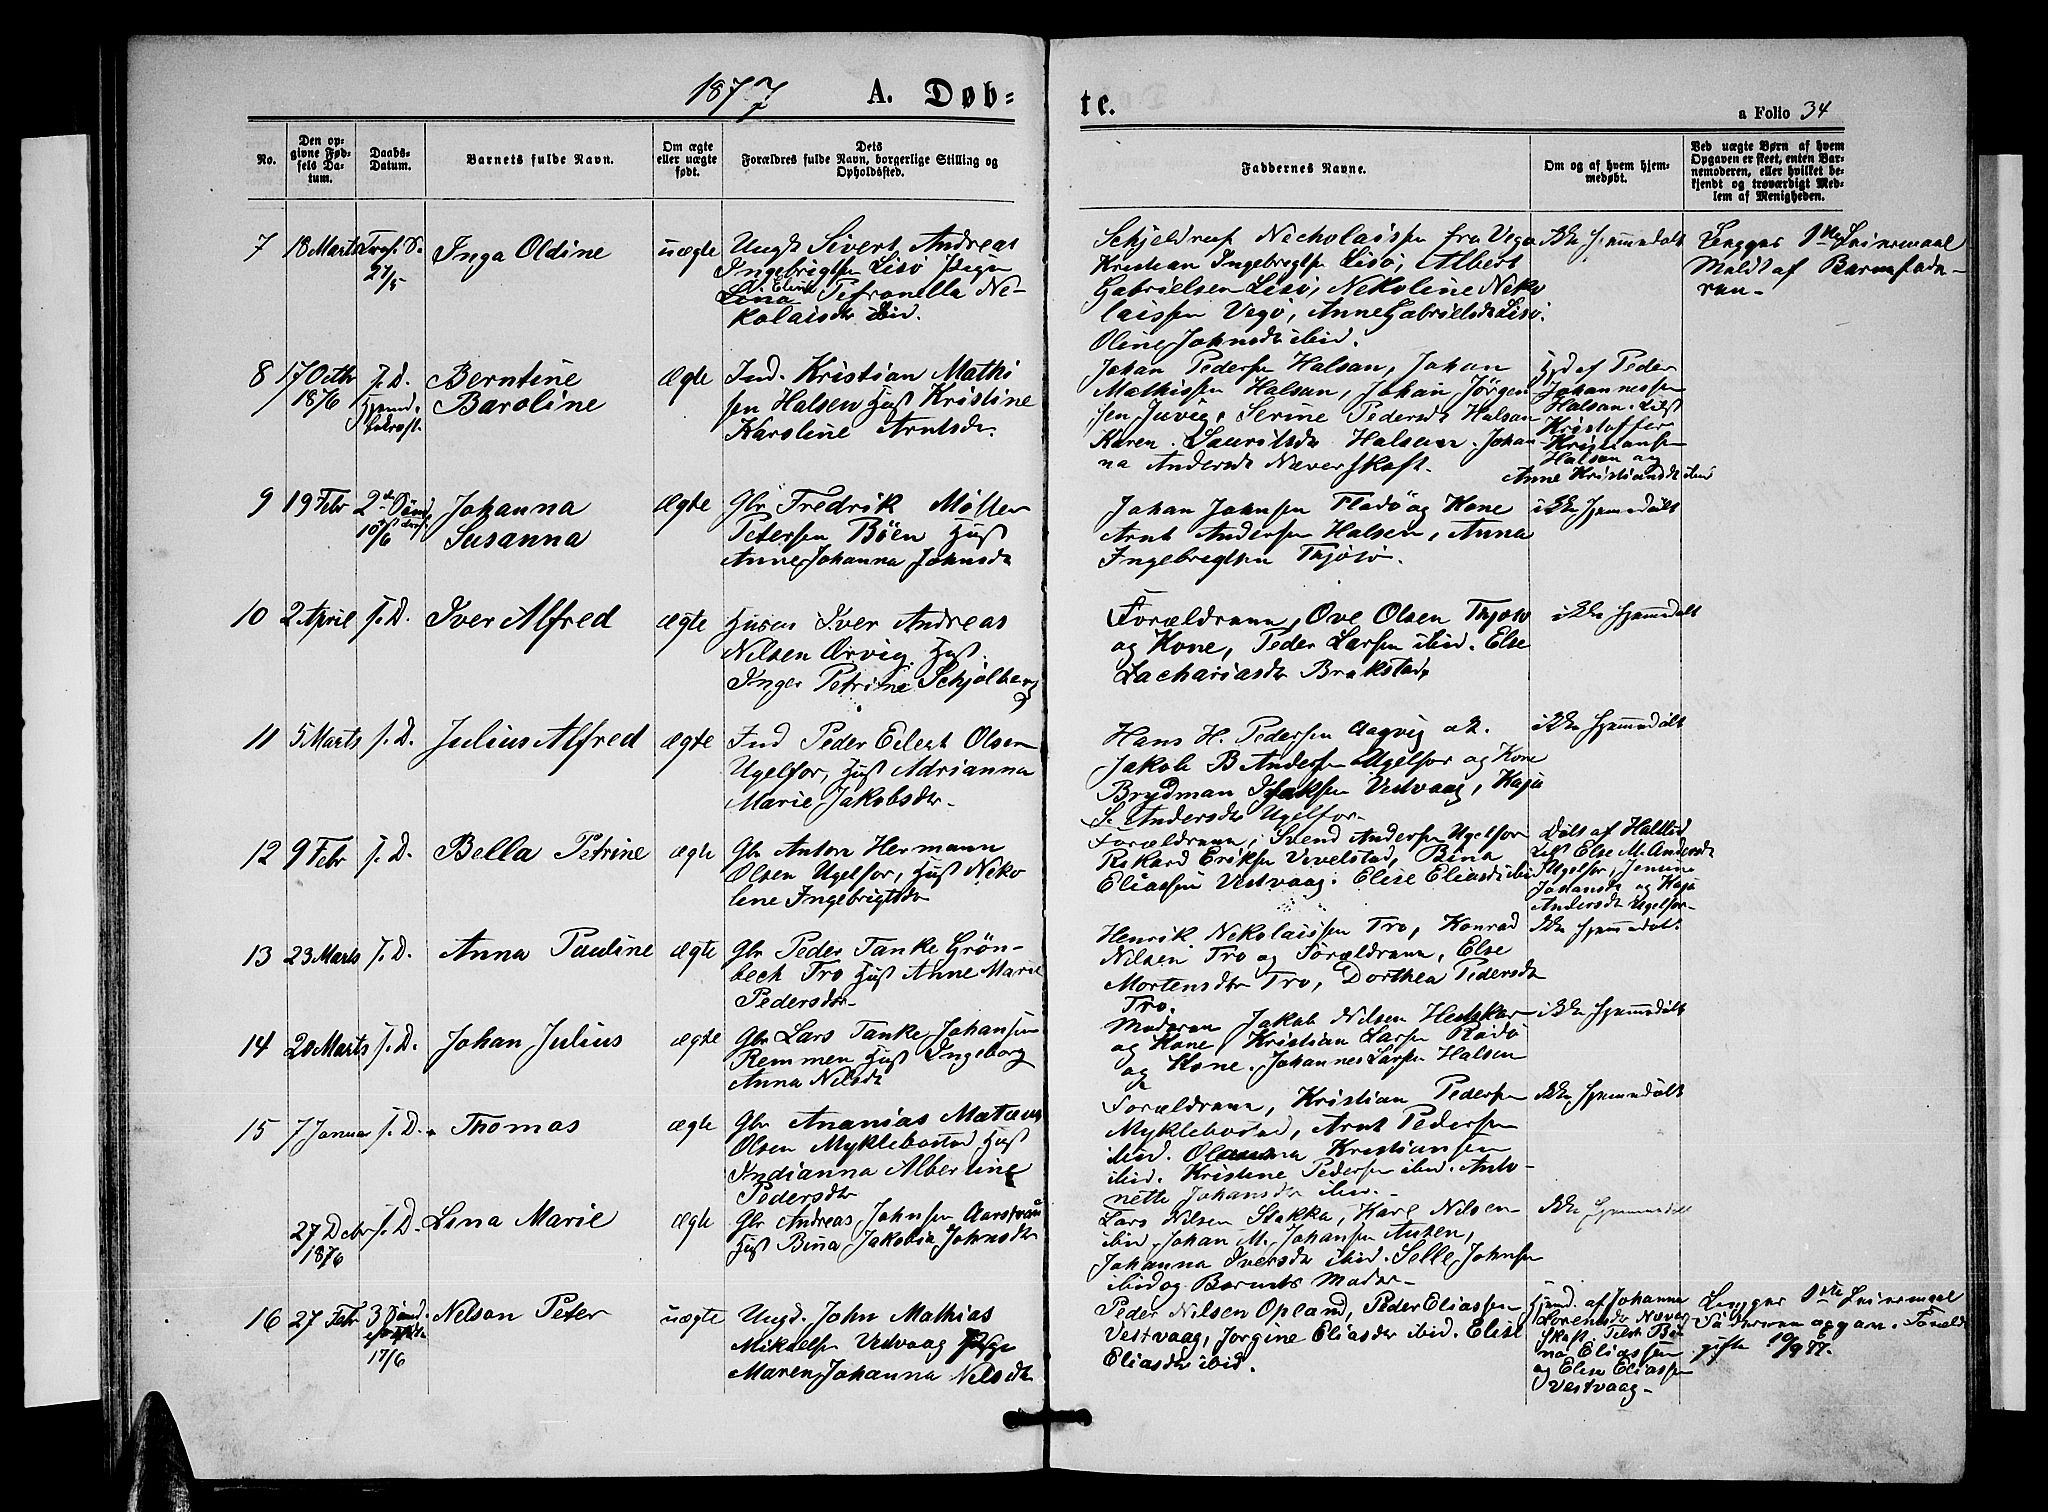 1877 A. Døb= te. a Folio 34
No.
Den op-
givne Fød-
sels Da-
tum.
Daabs-
Datum.
Barnets fulde Navn.
Om ægte
eller uægte
født.
Dets
Forældres fulde Navn, borgerlige Stilling og
Opholdssted.
Faddernes Navne.
Om og af hvem hjem-
medøbt.
Ved uægte Børn af hvem
Opgaven er skeet, enten Bar-
nemoderen, eller hvilket be-
kjendt og troværdigt Med-
lem af Menigheden.
7 18 Marts
21/5
Inga Oldine
uægte
Ungk Sivert Andreas
Ingebrigtsen Lisö Pigen
Eline
Lina Petronella Ne-
kolaisdtr ibid.
Schjeldruf Nicholaissen fra Vega
Kristian Ingebrigtsen Lisö, Albert
Gabrielsen Lisö, Nekoline Neko
laissen Vegö, Anne Gabrielsdtr Lisö.
Oline Johnsdtr ibid.
ikke hjemmedøbt
Lægger 1ste Leiermaal
Meldt af Barnefade-
ren-
8 17 Octbr
1876
s. D.
Hjemd.
bekræft.
Berntine
Baroline
Ægte
Ind. Kristian Mathi
sen Halsen Hust Kristine
Karoline Arntsdtr.
Johan Pedersen Halsan, Johan
Mathissen Halsan, Johan Jörgen
sen Juvig, Serine Pedersdtr Halsan
Karen Lauritsdtr Halsan. Johan-
na Andersdtr Næverskaft.
Hjd af Peder
Johannessen
Halsan. Test
Kristoffer
Kristiansen
Halsan og
Anne Kristiansdtr ibid
9 19 Febr 2den Sönd
10/6
Johanna
Susanna
Ægte
Gbr Fredrik Möller
Petersen Böen Hust
Anne Johanna Johnsdtr
Johan Johnsen Flodö og Kone
Arnt Andersen Halsen, Anna
Ingebrigtsen Thjötö.
ikke hjemmedøbt
10 2 April s. D. Iver Alfred ægte
Husm Iver Andreas
Nilsen Örvig Hust.
Inger Petrine Schjölberg
Forældrene, Ove Olsen Thjötö
og Kone, Peder Larsen ibid. Else
Zachariasdtr Brakstad.
ikke hjemmedøbt
11 5 Marts s. D. Julius Alfred ægte
Ind Peder Eilert Olsen
Ugelfor, Hust Adrianna
Marie Jakobsdtr.
Hans H. Pedersen Aagvig
Jakob B Andersen Ugelfor og Kone
Brydman Isaksen Vestvaag, Kaja
S. Andersdtr Ugelfor.
ikke hjemmedöbt
12 9 Febr s. D. Bella Petrine ægte
Gbr Anton Hermann
Olsen Ugelfor, Hust Neko
line Ingebrigtsdtr
Forældrene, Svend Andersen Ugelfor
Rikard Eriksen Vevelstad, Bina
Eliassen Vestvaag. Elise Eliasdtr ibid
Döbt af
Test Else M. Andersdtr
Ugelfor, Jensine
Johansdtr og Kaja
Andersdtr Ugelfor.
13 23 Marts s. D. Anna Pauline ægte
Gbr Peder Tanke Grön-
bech Tro Hust Anne Marie
Pedersdtr.
Henrik Nekolaissen Tro, Konrad
Nilsen Tro og Forældrene, Else
Mortensdtr Tro, Dorthea Pedersdtr
Tro.
ikke hjemmedöbt.
14 20 Marts s. D. Johan Julius ægte
Gbr Lars Tanke Johansen
Remmen Hust Ingeborg
Anna Nilsdtr
Moderen Jakob Nilsen
og Kone, Kristian Larsen Rödö
og Kone. Johannes Larsen Halsen
ikke hjemmedöbt
15 7 Januar s. D. Thomas ægte
Gbr Ananias Mateus
Olsen Myklebostad Hust
Indianna Albertine
Pedersdtr
Forældrene, Kristian Pedersen
Myklebostad, Arnt Pedersen
ibid. Kristiansen
ibid. Kristine Pedersen ibid. Anto-
nette Johansdtr ibid.-
ikke hjemmedöbt
27 Decbr
1876
s. D. Lina Marie ægte
Gbr Andreas Johnsen
Hust Bina Jakobia Johnsdtr
Lars Nilsen Stokka, Karl Nilsen
ibid. Johan M. Johansen Auten,
Johanna Iversdtr ibid. Selle Johnsen
ibid og Barnets Moder-
ikke hjemmedöbt
16 27 Febr 3 Sönd.
17/6
Nelson Peter
uægte
Ungd. John Mathias
Mikkelsen Vestvaag Pige
Maren Johanna Nelsdtr
Peder Nilsen Opland, Peder Eliassen
Vestvaag, Jorgine Eliasdtr ibid. Elise
Eliasdtr ibid.
Hjemd. af Johanna
Lorensdtr Næver
skaft. Test Bi
na Eliassen
og Elise Eliassen
Vestvaag-
Lægger 1ste Leiermaal
gifte 10/9 77.